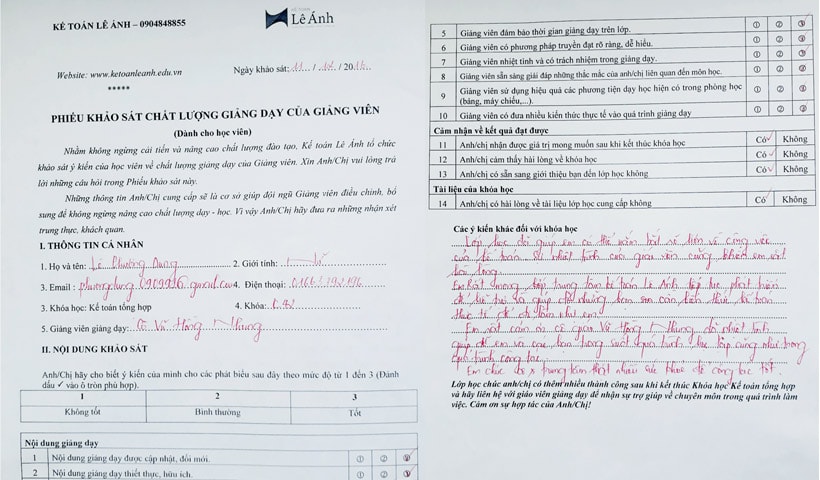 KẾ TOÁN LÊ ÁNH – 0904848855
KẾ TOÁN
Lê Ánh
Website: www.ketoanleanh.edu.vn
Ngày khảo sát: / / 20
*****
PHIẾU KHẢO SÁT CHẤT LƯỢNG GIẢNG DẠY CỦA GIẢNG VIÊN
(Dành cho học viên)
Nhằm không ngừng cải tiến và nâng cao chất lượng đào tạo, Kế toán Lê Ánh tổ chức
khảo sát ý kiến của học viên về chất lượng giảng dạy của Giảng viên. Xin Anh/Chị vui lòng trả
lời những câu hỏi trong Phiếu khảo sát này.
Những thông tin Anh/Chị cung cấp sẽ là cơ sở giúp đội ngũ Giảng viên điều chỉnh, bổ
sung để không ngừng nâng cao chất lượng dạy - học. Vì vậy Anh/Chị hãy đưa ra những nhận xét
trung thực, khách quan.
I. THÔNG TIN CÁ NHÂN
1. Họ và tên: Lê Phương Dung 2. Giới tính: Nữ
3. Email: 4. Điện thoại:
3. Khóa học: Kế toán tổng hợp 4. Khóa:
5. Giảng viên giảng dạy: Cô Vũ Hồng Nhung
II. NỘI DUNG KHẢO SÁT
Anh/Chị hãy cho biết ý kiến của mình cho các phát biểu sau đây theo mức độ từ 1 đến 3 (Đánh
dấu ✓ vào ô tròn phù hợp).
1 2 3
Không tốt Bình thường Tốt
Nội dung giảng dạy
1 Nội dung giảng dạy được cập nhật, đổi mới. ① ② ③
2 Nội dung giảng dạy thiết thực, hữu ích. ① ② ③
5 Giảng viên đảm bảo thời gian giảng dạy trên lớp. ① ② ③
6 Giảng viên có phương pháp truyền đạt rõ ràng, dễ hiểu. ① ② ③
7 Giảng viên nhiệt tình và có trách nhiệm trong giảng dạy. ① ② ③
8 Giảng viên sẵn sàng giải đáp những thắc mắc của anh/chị liên quan đến môn học. ① ② ③
9 Giảng viên sử dụng hiệu quả các phương tiện dạy học hiện có trong phòng học
(bảng, máy chiếu,...). ① ② ③
10 Giảng viên có đưa nhiều kiến thức thực tế vào quá trình giảng dạy ① ② ③
Cảm nhận về kết quả đạt được
11 Anh/chị nhận được giá trị mong muốn sau khi kết thúc khóa học Có ✓ Không
12 Anh/chị cảm thấy hài lòng về khóa học Có ✓ Không
13 Anh/chị có sẵn sang giới thiệu bạn đến lớp học không Có ✓ Không
Tài liệu của khóa học
14 Anh/chị có hài lòng về tài liệu lớp học cung cấp không Có ✓ Không
Các ý kiến khác đối với khóa học
Lớp học đã giúp em có thể nắm bắt về công việc
của kế toán. Sự nhiệt tình của giáo viên cũng khiến em rất
hài lòng.
Em rất mong trung tâm kế toán Lê Ánh tiếp tục phát triển
và giúp đỡ những bạn kế toán
thực tế như em!
Em rất cảm ơn cô giáo Vũ Hồng Nhung đã nhiệt tình
giúp đỡ em và các bạn trong suốt quá trình học lớp cũng như trong
quá trình công tác.
Em chúc trung tâm thật nhiều sức khoẻ để công tác tốt.
Lớp học chúc anh/chị có thêm nhiều thành công sau khi kết thúc Khóa học Kế toán tổng hợp
và hãy liên hệ với giáo viên giảng dạy để nhận sự trợ giúp về chuyên môn trong quá trình làm
việc. Cảm ơn sự hợp tác của Anh/Chị!